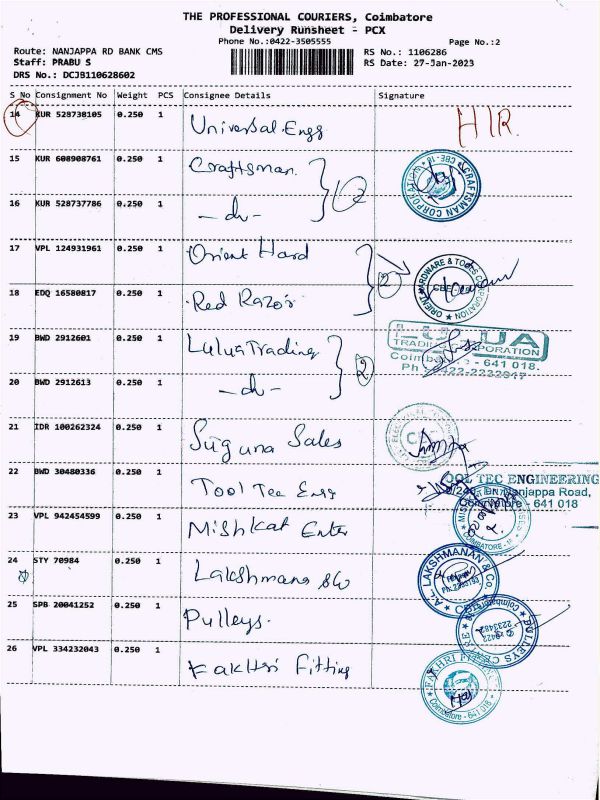 THE PROFESSIONAL COURIERS, Coimbatore
Delivery Runsheet - PCX
Phone No.:0422-3505555 Page No.:2
Route: NANJAPPA RD BANK CMS RS No.: 1106286
Staff: PRABU S RS Date: 27-Jan-2023
DRS No.: DCJB110628602
S No Consignment No Weight PCS Consignee Details Signature
14 KUR 528738105 0.250 1 Universal Engg HIR.
15 KUR 608908761 0.250 1 Craftsman. CRAFTSMAN CORPORATION ★ CBE-18 ★
16 KUR 528737786 0.250 1 -do- 2
17 VPL 124931961 0.250 1 Orient Hard ORIENT HARDWARE & TOOLS CORPORATION
18 EDQ 16580817 0.250 1 Red Razor 2
19 BWD 2912601 0.250 1 Lulua Trading LULUA
TRADING CORPORATION
Coimbatore - 641 018.
20 BWD 2912613 0.250 1 -do- 2 Ph
21 IDR 100262324 0.250 1 Suguna Sales
22 BWD 30480336 0.250 1 Tool Tec Engg TOOL TEC ENGINEERING
Nanjappa Road,
Coimbatore - 641 018
23 VPL 942454599 0.250 1 Mishkat Enter COIMBATORE
24 STY 70984 0.250 1 Lakshmana LAKSHMANAN & Co
25 SPB 20041252 0.250 1 Pulleys. PULLEYS
26 VPL 334232043 0.250 1 Fakhri Fitting FAKHRI
Coimbatore - 641 018